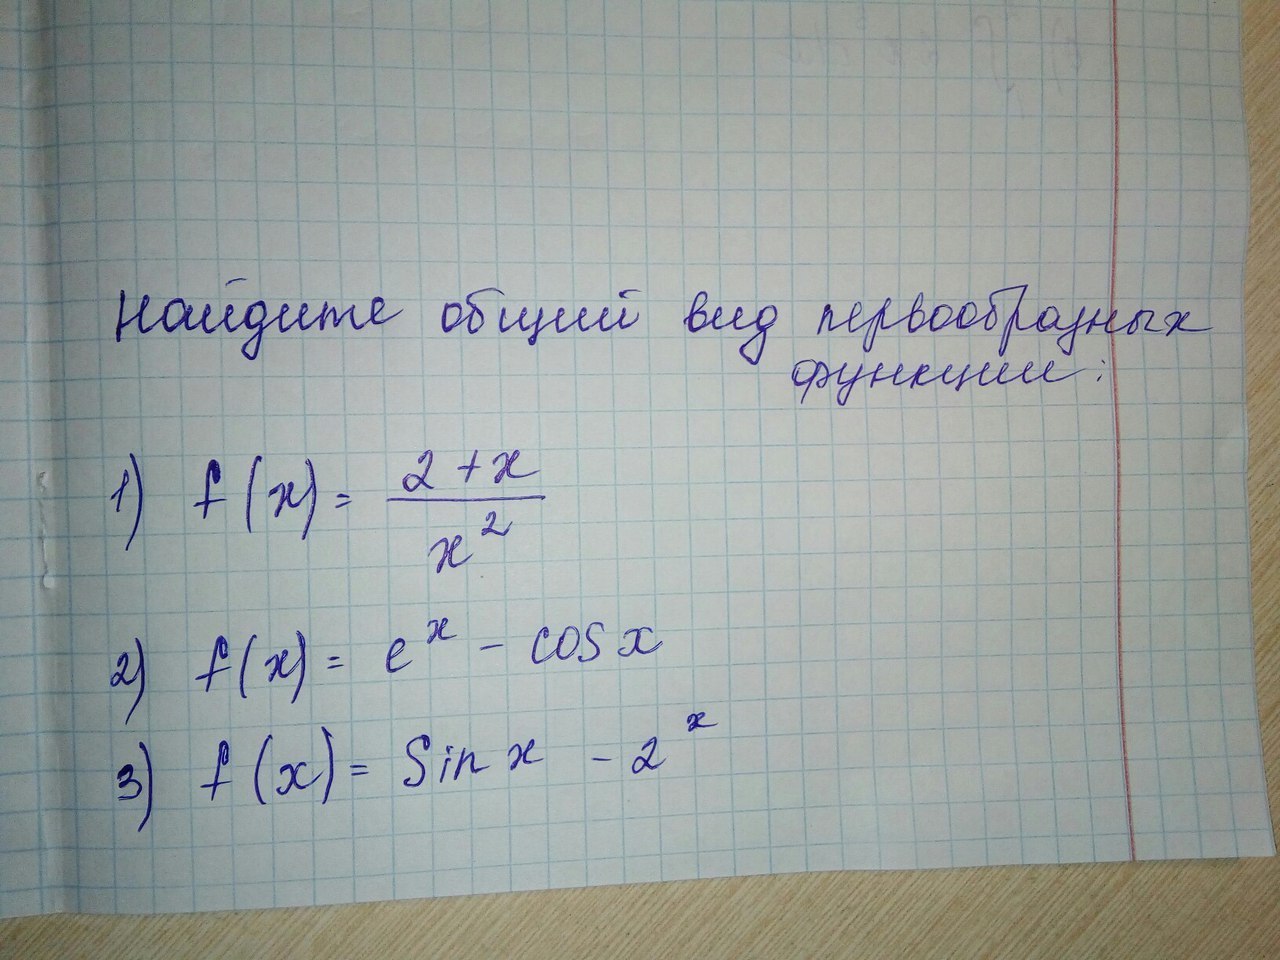 Найдите общий вид первообразных
функции:
1) f(x) = \frac{2+x}{x^2}
2) f(x) = e^x - cos x
3) f(x) = Sin x - 2^x